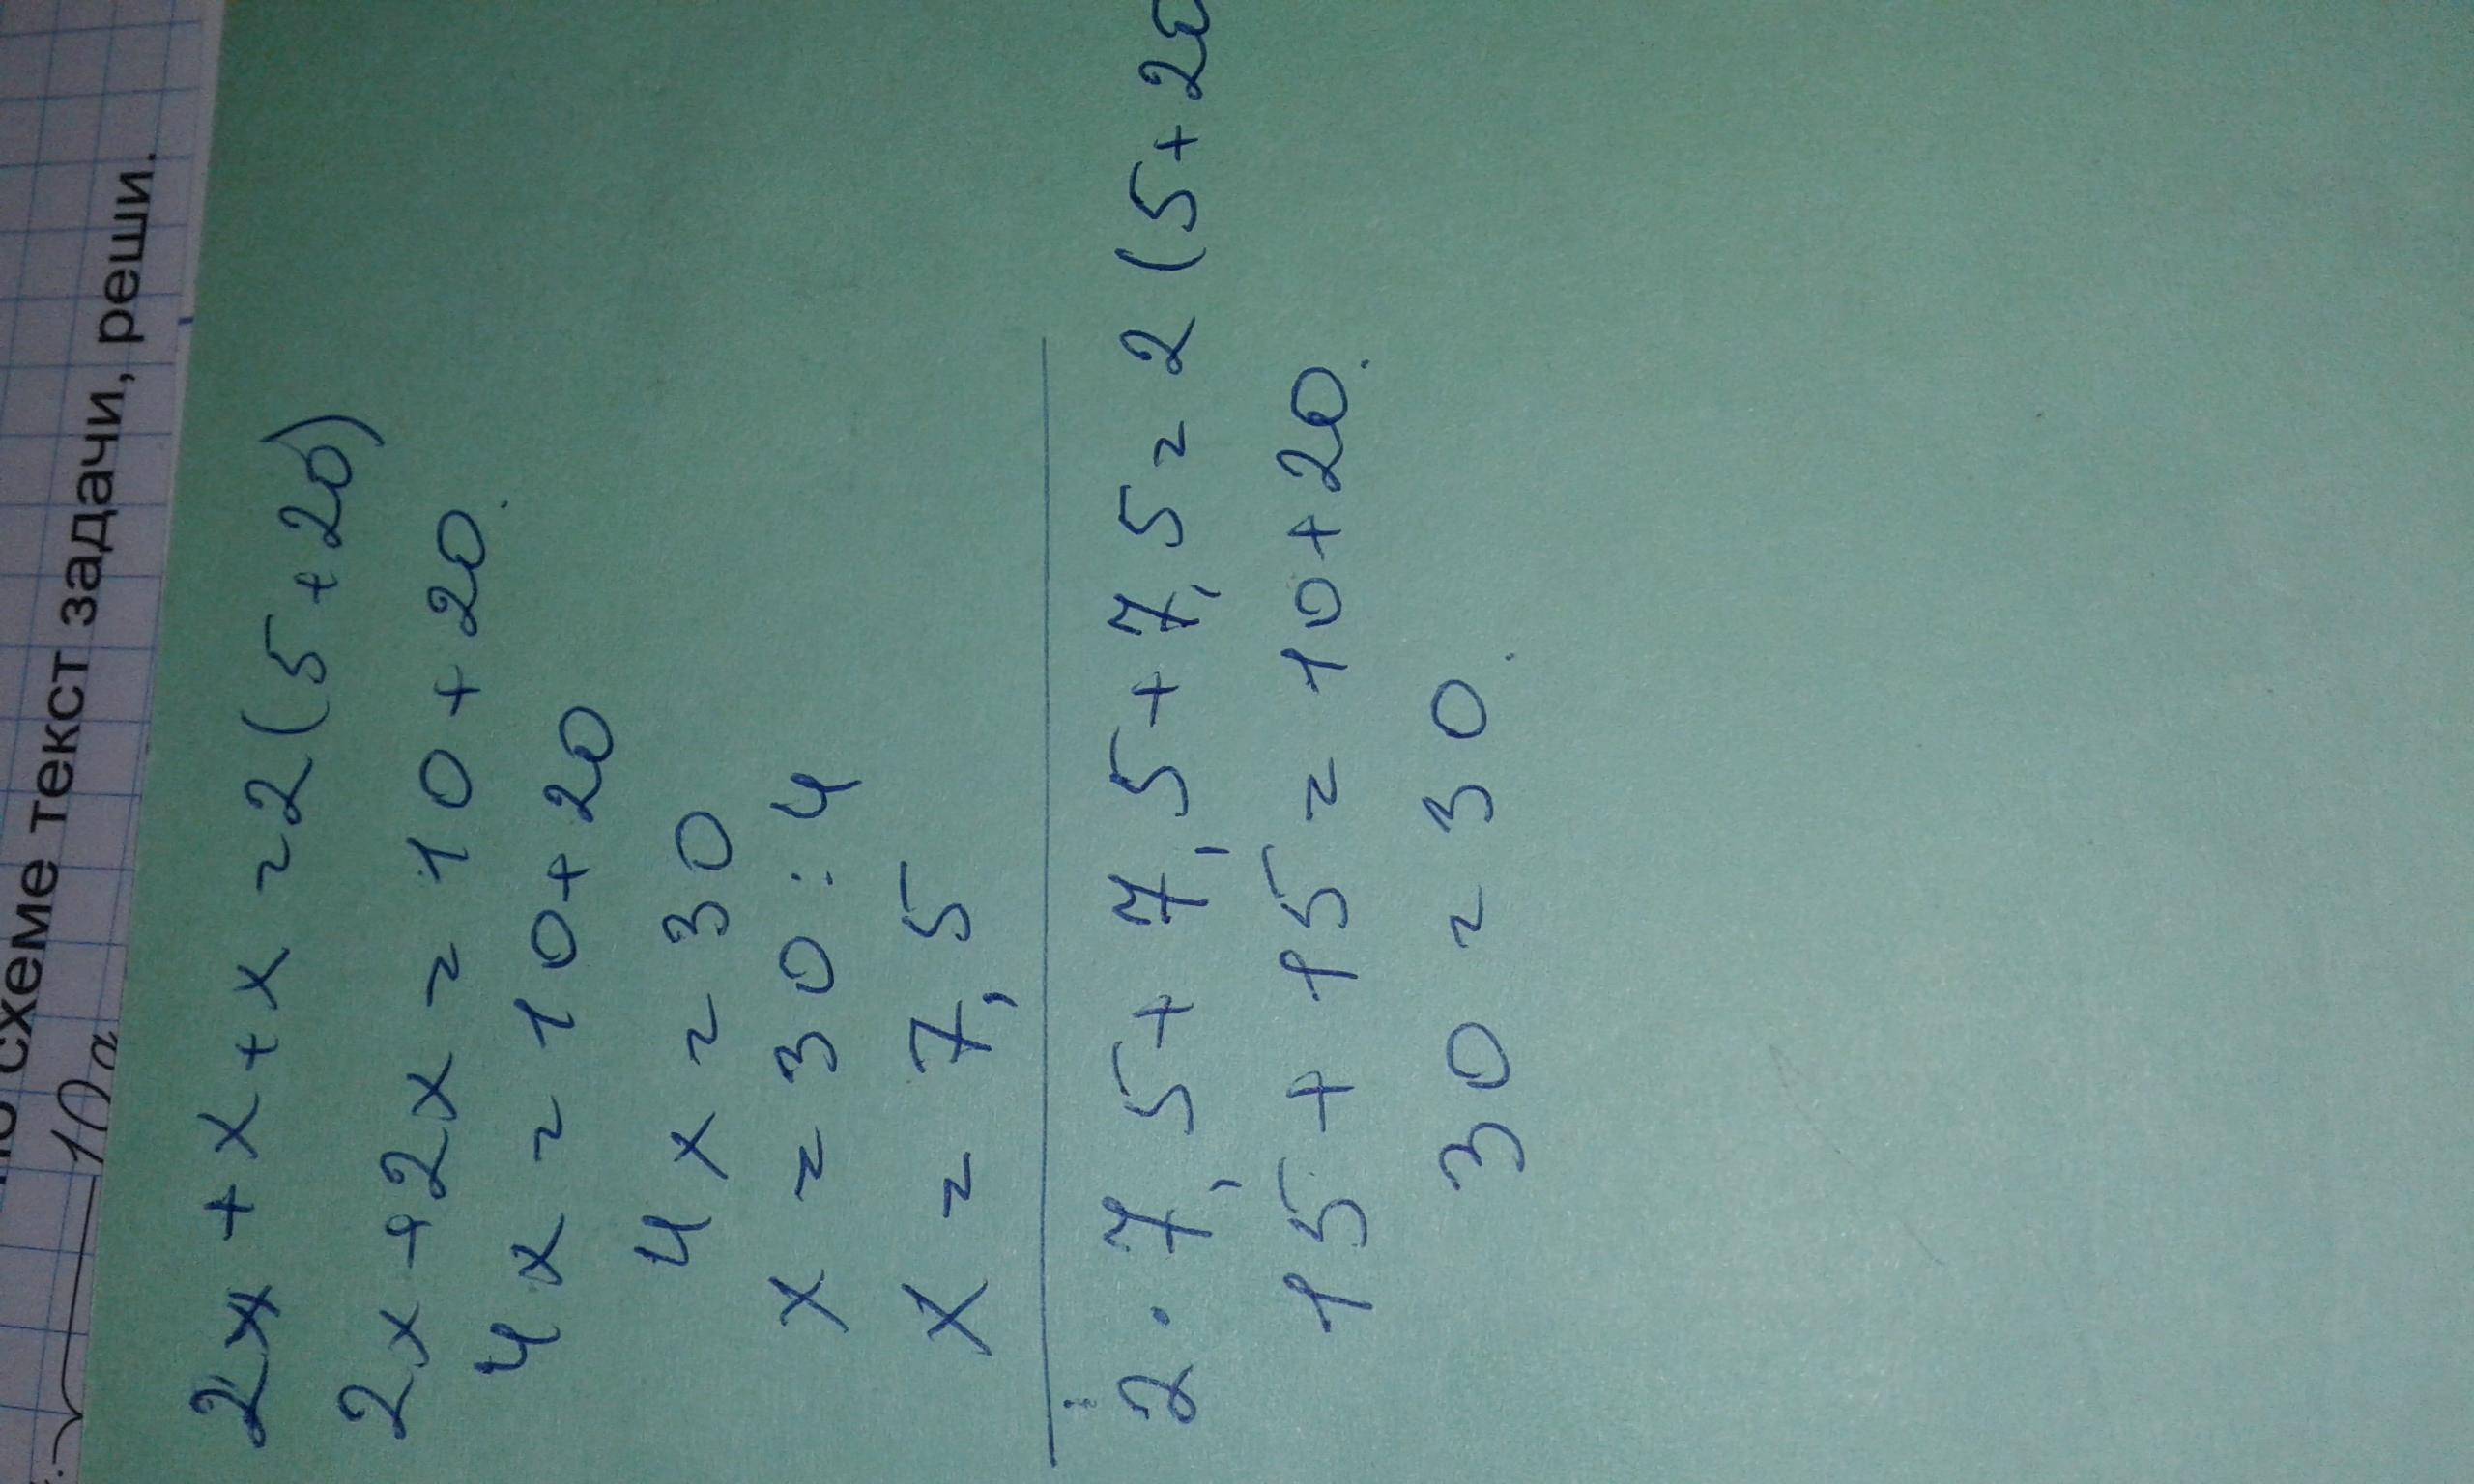 схеме текст задачи, реши.
2x + x + x = 2(5+20)
2x + 2x = 10 + 20.
4x = 10 + 20
4x = 30
x = 30 : 4
x = 7,5
2 · 7,5 + 7,5 + 7,5 = 2 (5 + 20
15 + 15 = 10 + 20.
30 = 30.